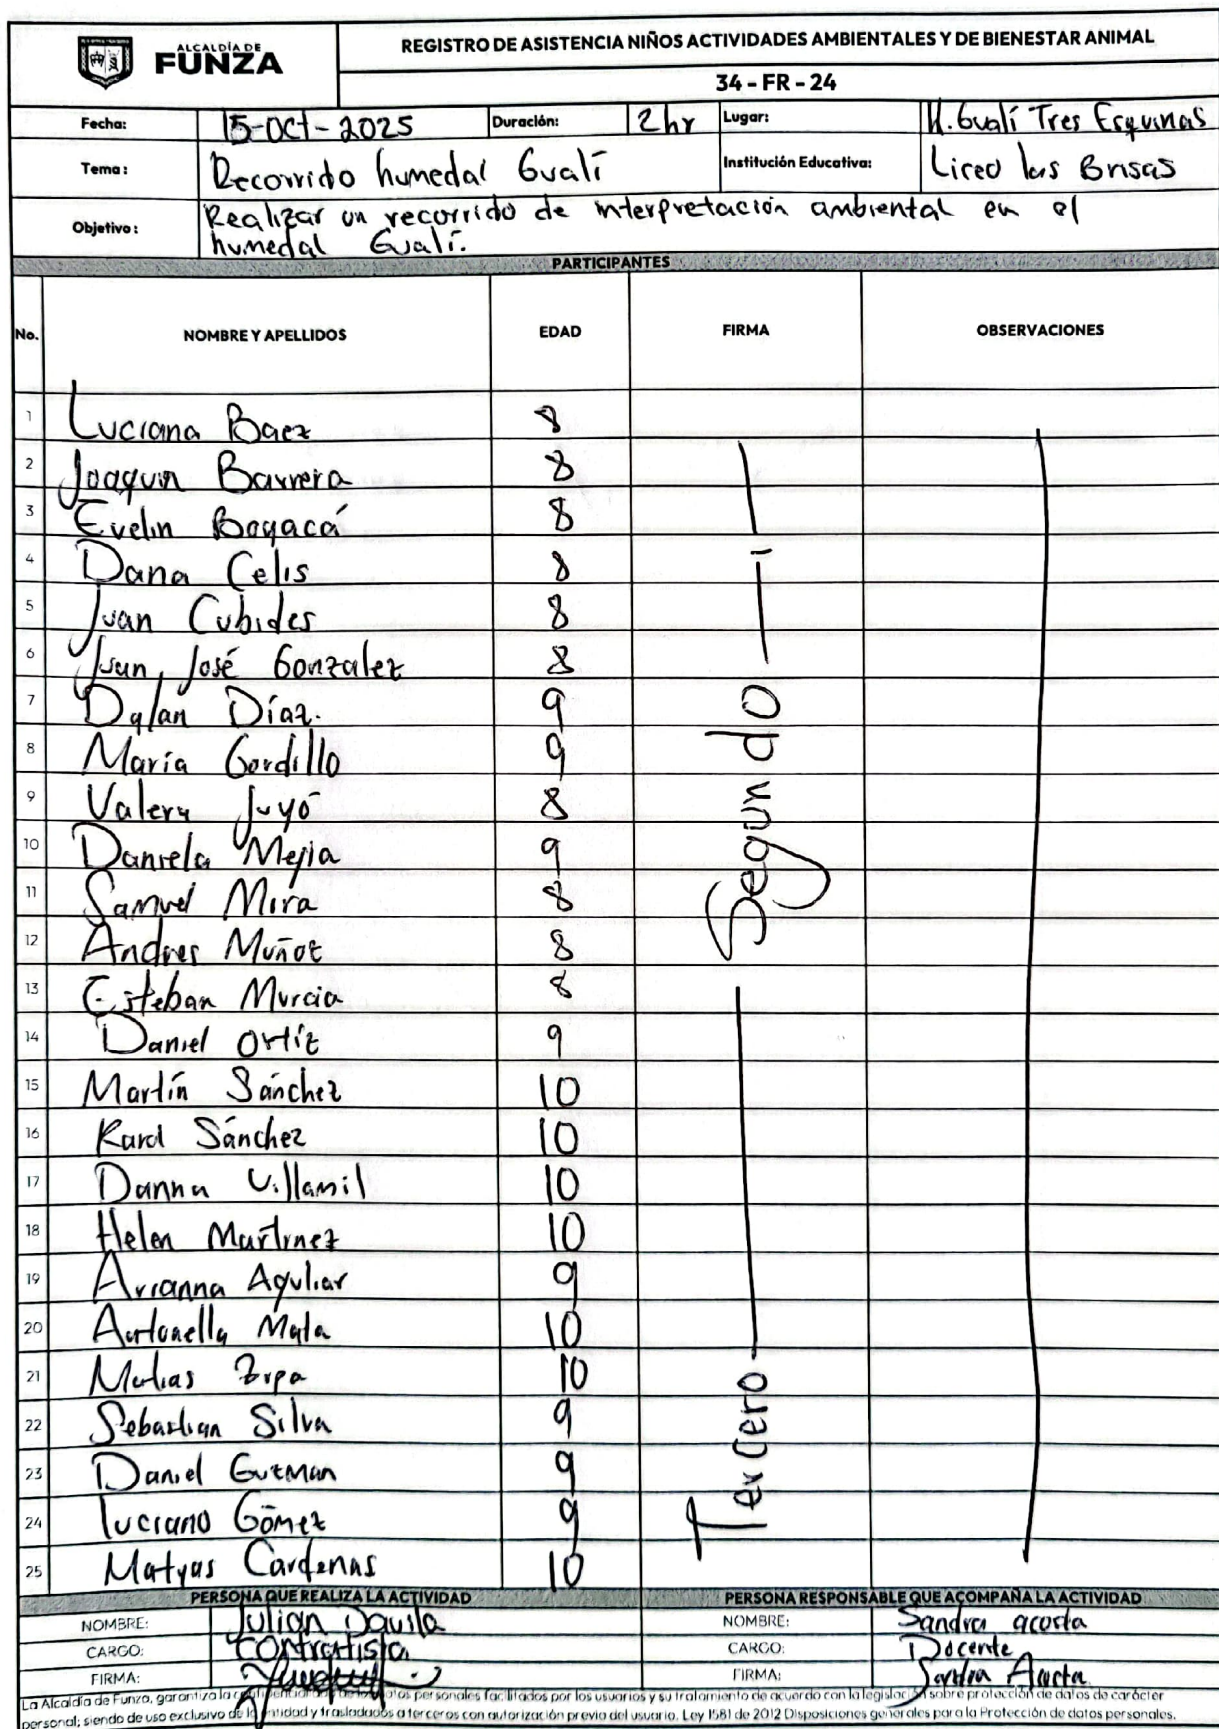 ALCALDÍA DE
FUNZA
REGISTRO DE ASISTENCIA NIÑOS ACTIVIDADES AMBIENTALES Y DE BIENESTAR ANIMAL
34 - FR - 24
Fecha: 15-Oct-2025 Duración: 2hr Lugar: H. Gualí Tres Esquinas
Tema: Recorrido humedal Gualí Institución Educativa: Liceo las Brisas
Objetivo: Realizar un recorrido de interpretación ambiental en el
humedal Gualí.
PARTICIPANTES
No. NOMBRE Y APELLIDOS EDAD FIRMA OBSERVACIONES
1 Luciana Baez 8
2 Joaquin Barrera 8
3 Evelin Boyacá 8
4 Dana Celis 8
5 Juan Cubides 8
6 Juan José Gonzalez 8
7 Dylan Díaz. 9
8 María Gordillo 9
9 Valery Juyó 8
10 Daniela Mejia 9
11 Samuel Mira 8
12 Andres Muñoz 8
13 Esteban Murcia 8
14 Daniel Ortíz 9
15 Martín Sánchez 10
16 Karol Sánchez 10
17 Danna Villamil 10
18 Helen Martinez 10
19 Arianna Aguliar 9
20 Antonella Mata 10
21 Matias 10
22 Sebastian Silva 9
23 Daniel Guzman 9
24 Luciano Gómez 9
25 Matyas Cardenas 10
Segundo
Tercero
PERSONA QUE REALIZA LA ACTIVIDAD PERSONA RESPONSABLE QUE ACOMPAÑA LA ACTIVIDAD
NOMBRE: Julian Davila NOMBRE: Sandra acosta
CARGO: Contratista CARGO: Docente
FIRMA: FIRMA: Sandra Acosta
La Alcaldía de Funza, garantiza la confidencialidad de los datos personales facilitados por los usuarios y su tratamiento de acuerdo con la legislación sobre protección de datos de carácter
personal; siendo de uso exclusivo de la entidad y trasladados a terceros con autorización previa del usuario. Ley 1581 de 2012 Disposiciones generales para la Protección de datos personales.